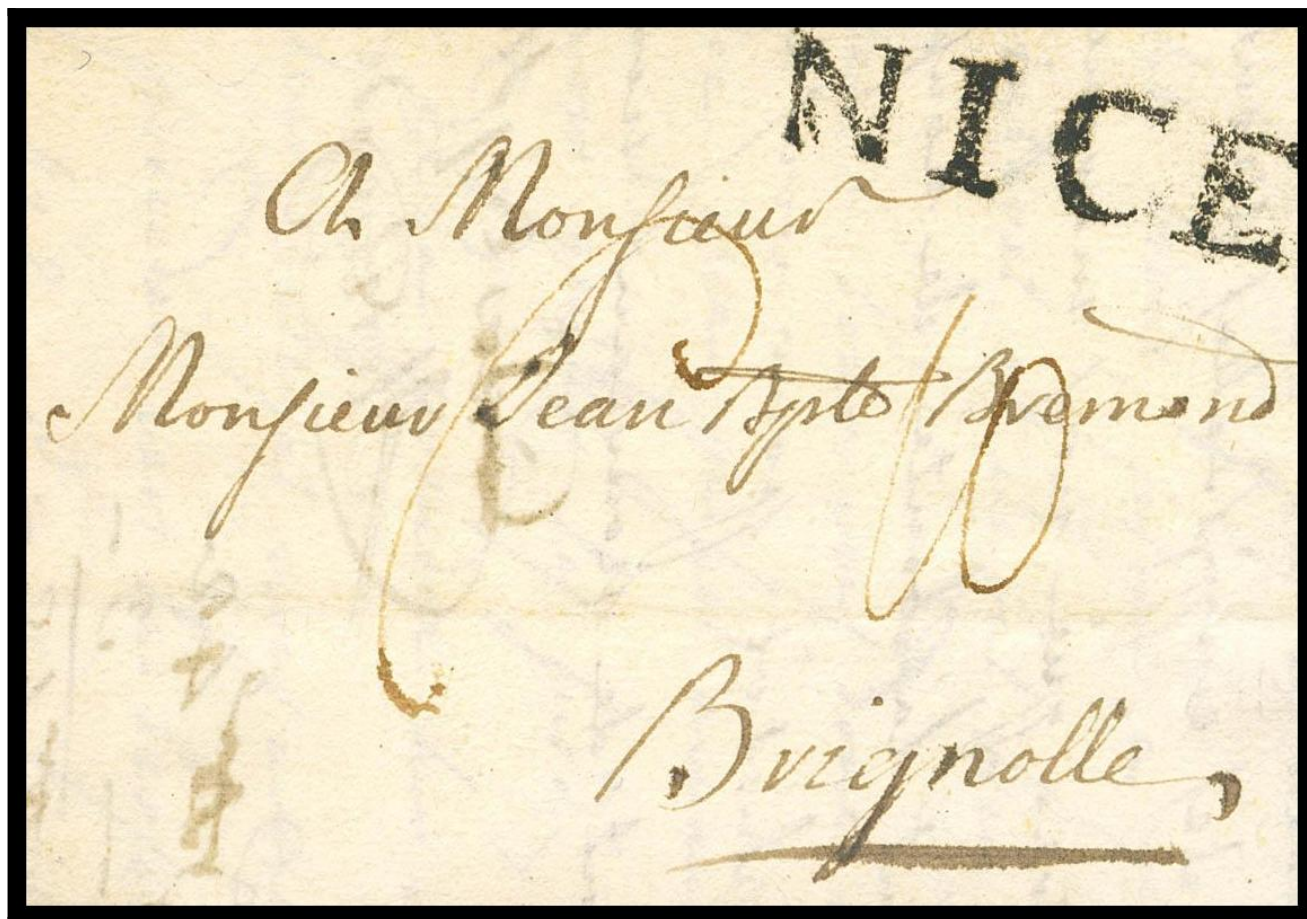 NICE
A Monsieur
Monsieur Jean Bpte Bremond
Brignolle